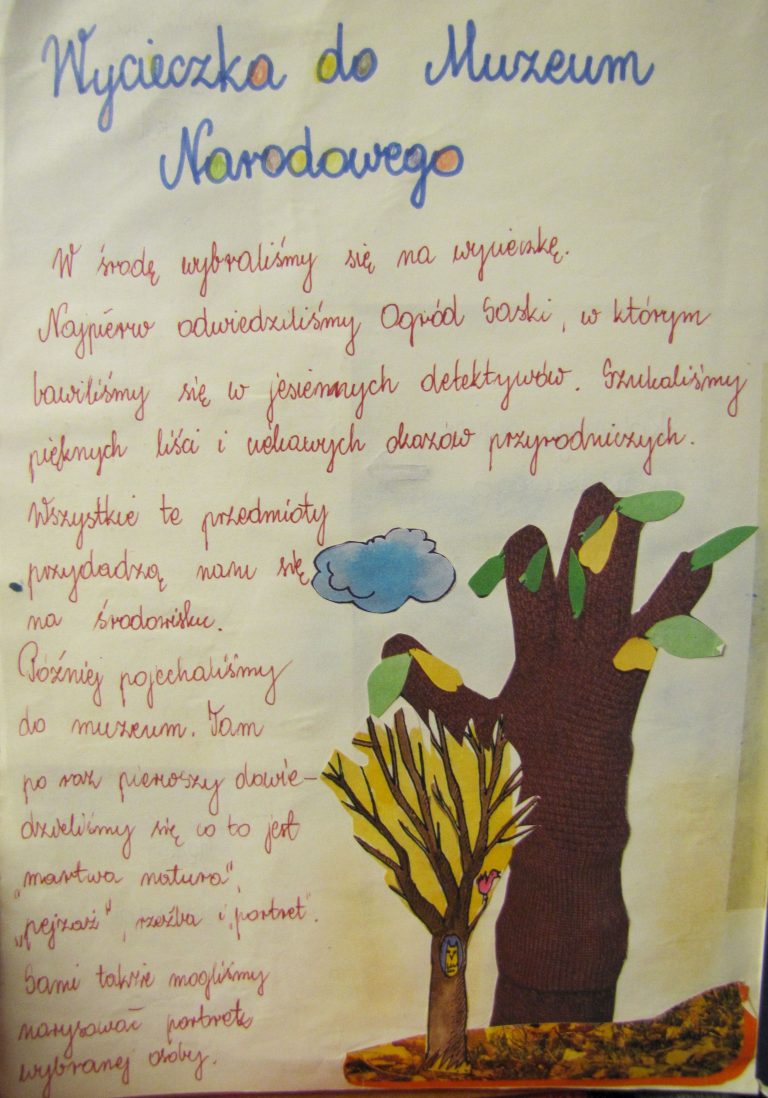 Wycieczka do Muzeum
Narodowego
W środę wybraliśmy się na wycieczkę.
Najpierw odwiedziliśmy Ogród Saski, w którym
bawiliśmy się w jesiennych detektywów. Szukaliśmy
pięknych liści i ciekawych okazów przyrodniczych.
Wszystkie te przedmioty
przydadzą nam się
na środowisku.
Później pojechaliśmy
do muzeum. Tam
po raz pierwszy dowie-
dzieliśmy się co to jest
"martwa natura",
"pejzaż", rzeźba i "portret".
Sami także mogliśmy
narysować portret
wybranej osoby.